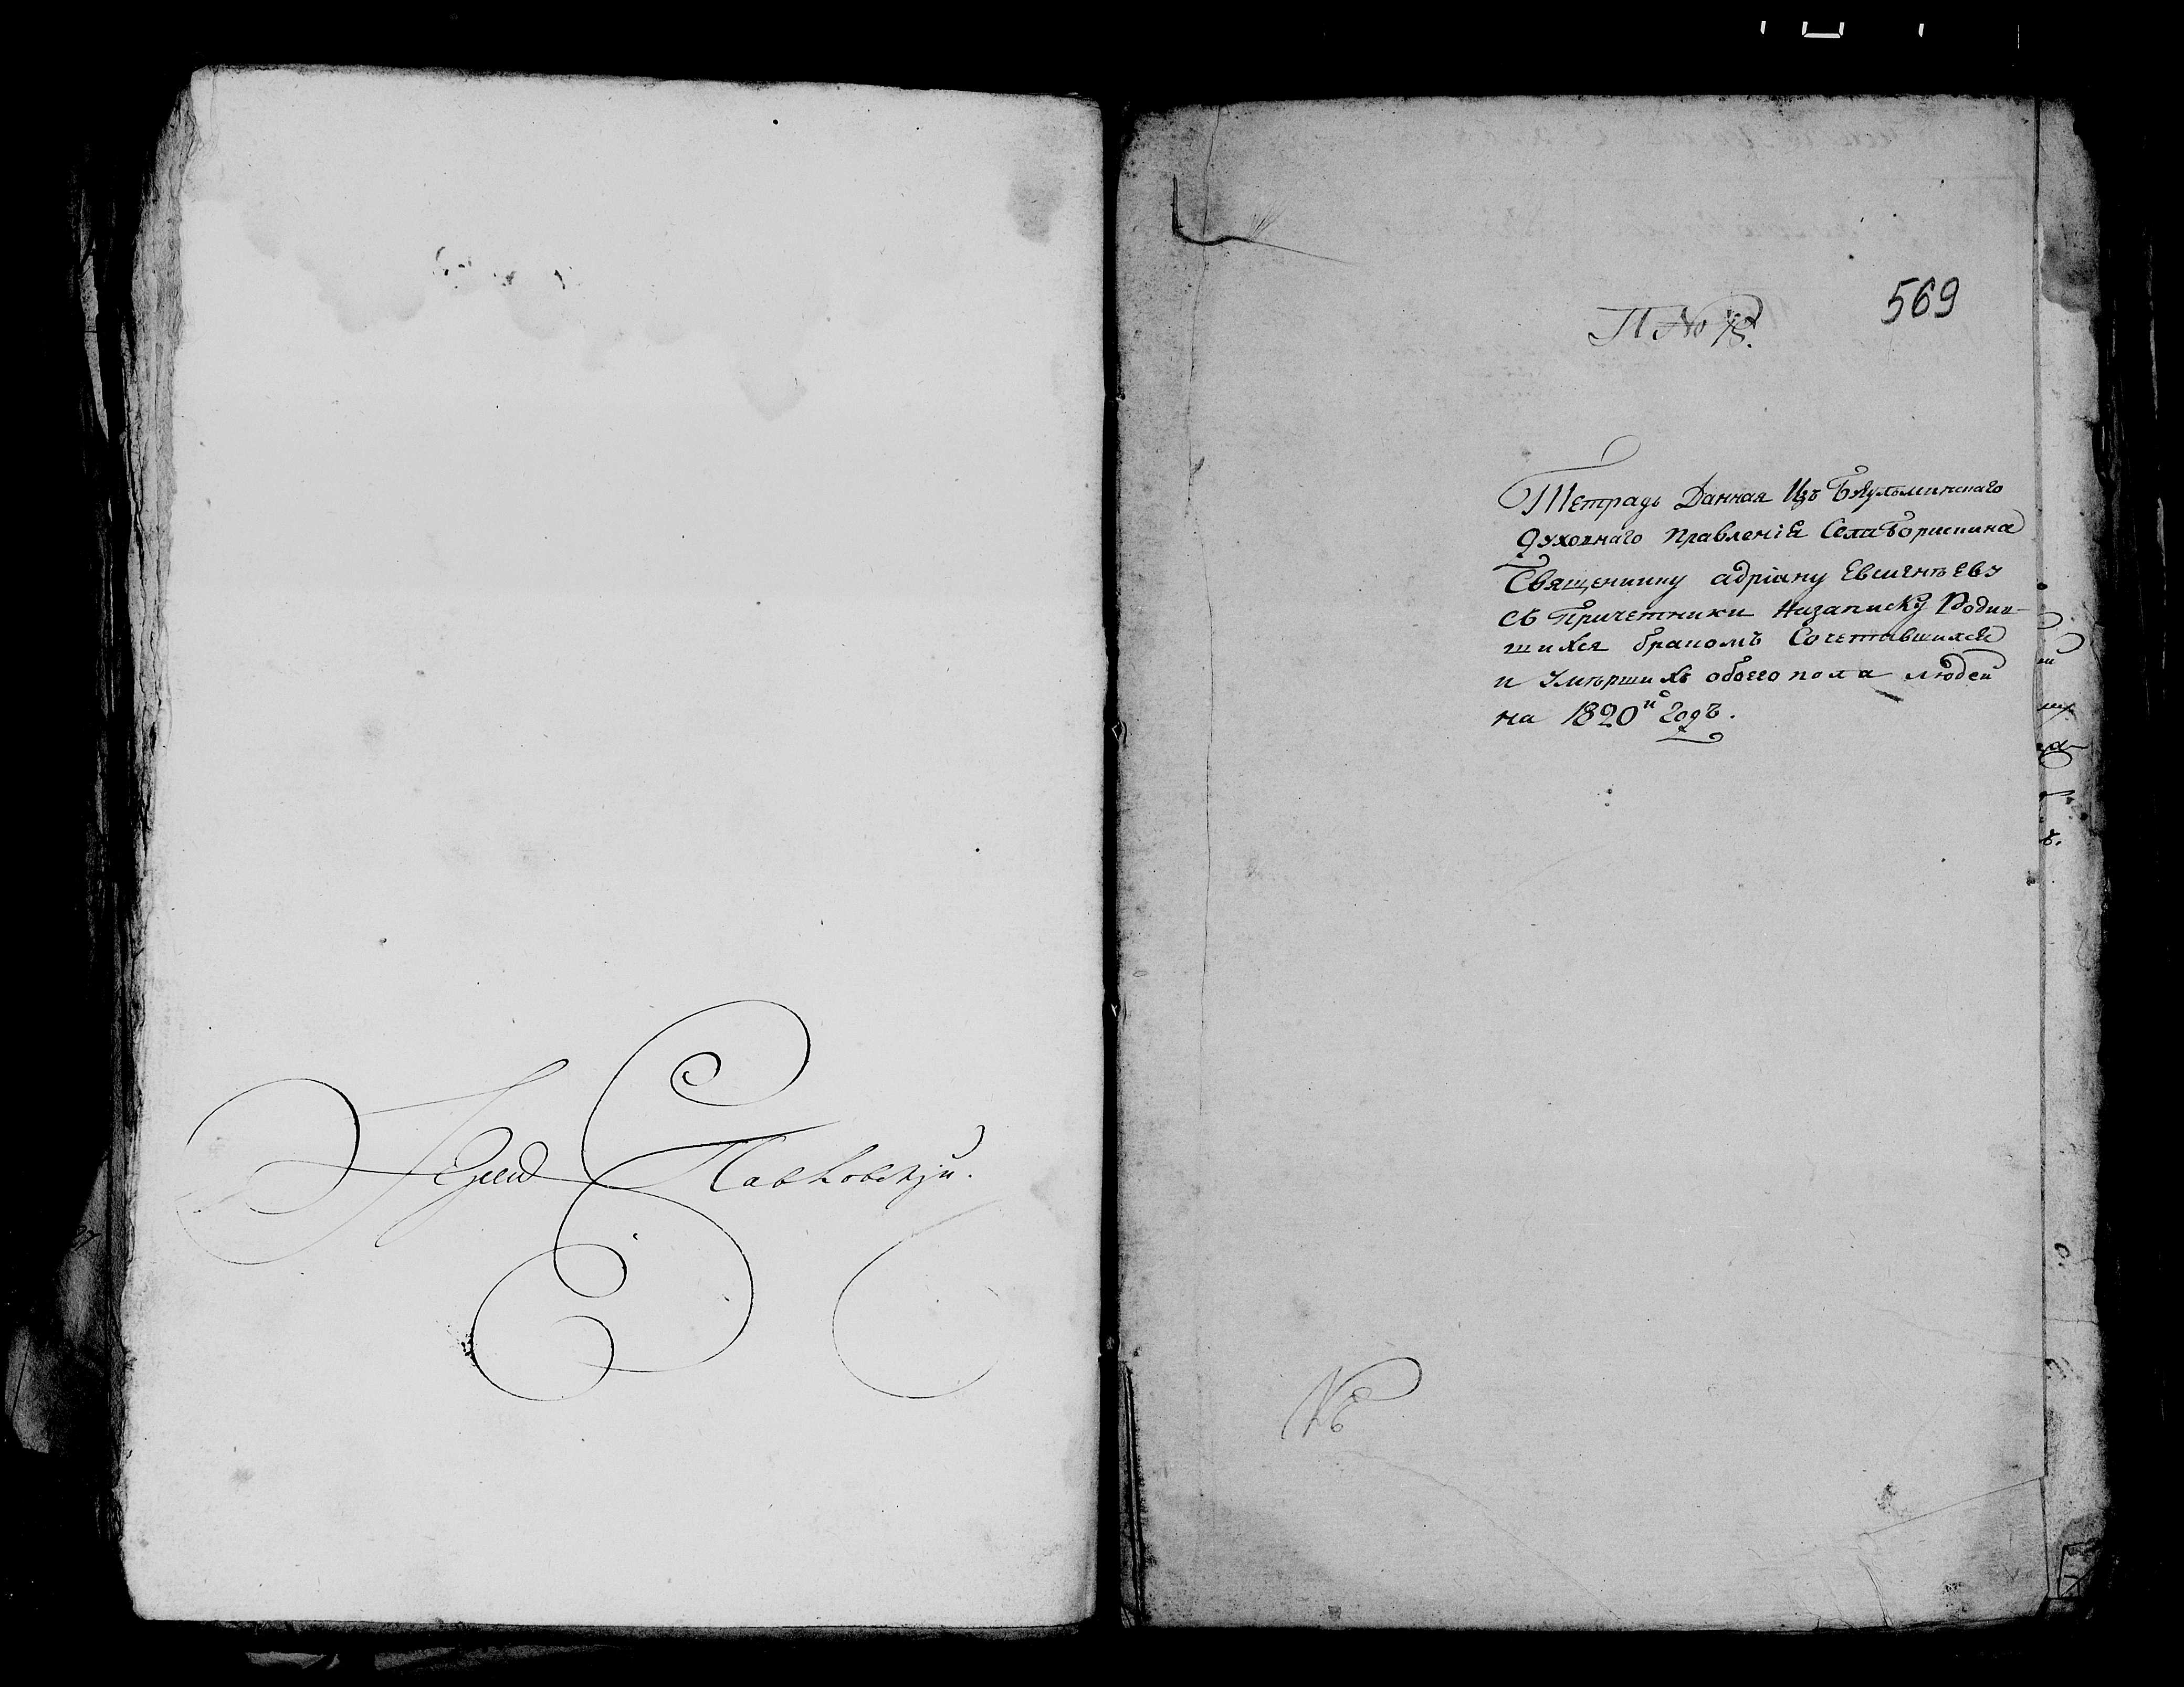 Павковскjи.
569
П №
Тетрадь Данная Изъ Бугульминскаго
духовнаго Правленiя Села Борискина
Священнику адрiану Евсигнѣеву
съ ПричетникиНазаписку Родив-
шихся бракомъ Сочетавшихся
и умершихъ обоего пола людей
на 1820й годъ.